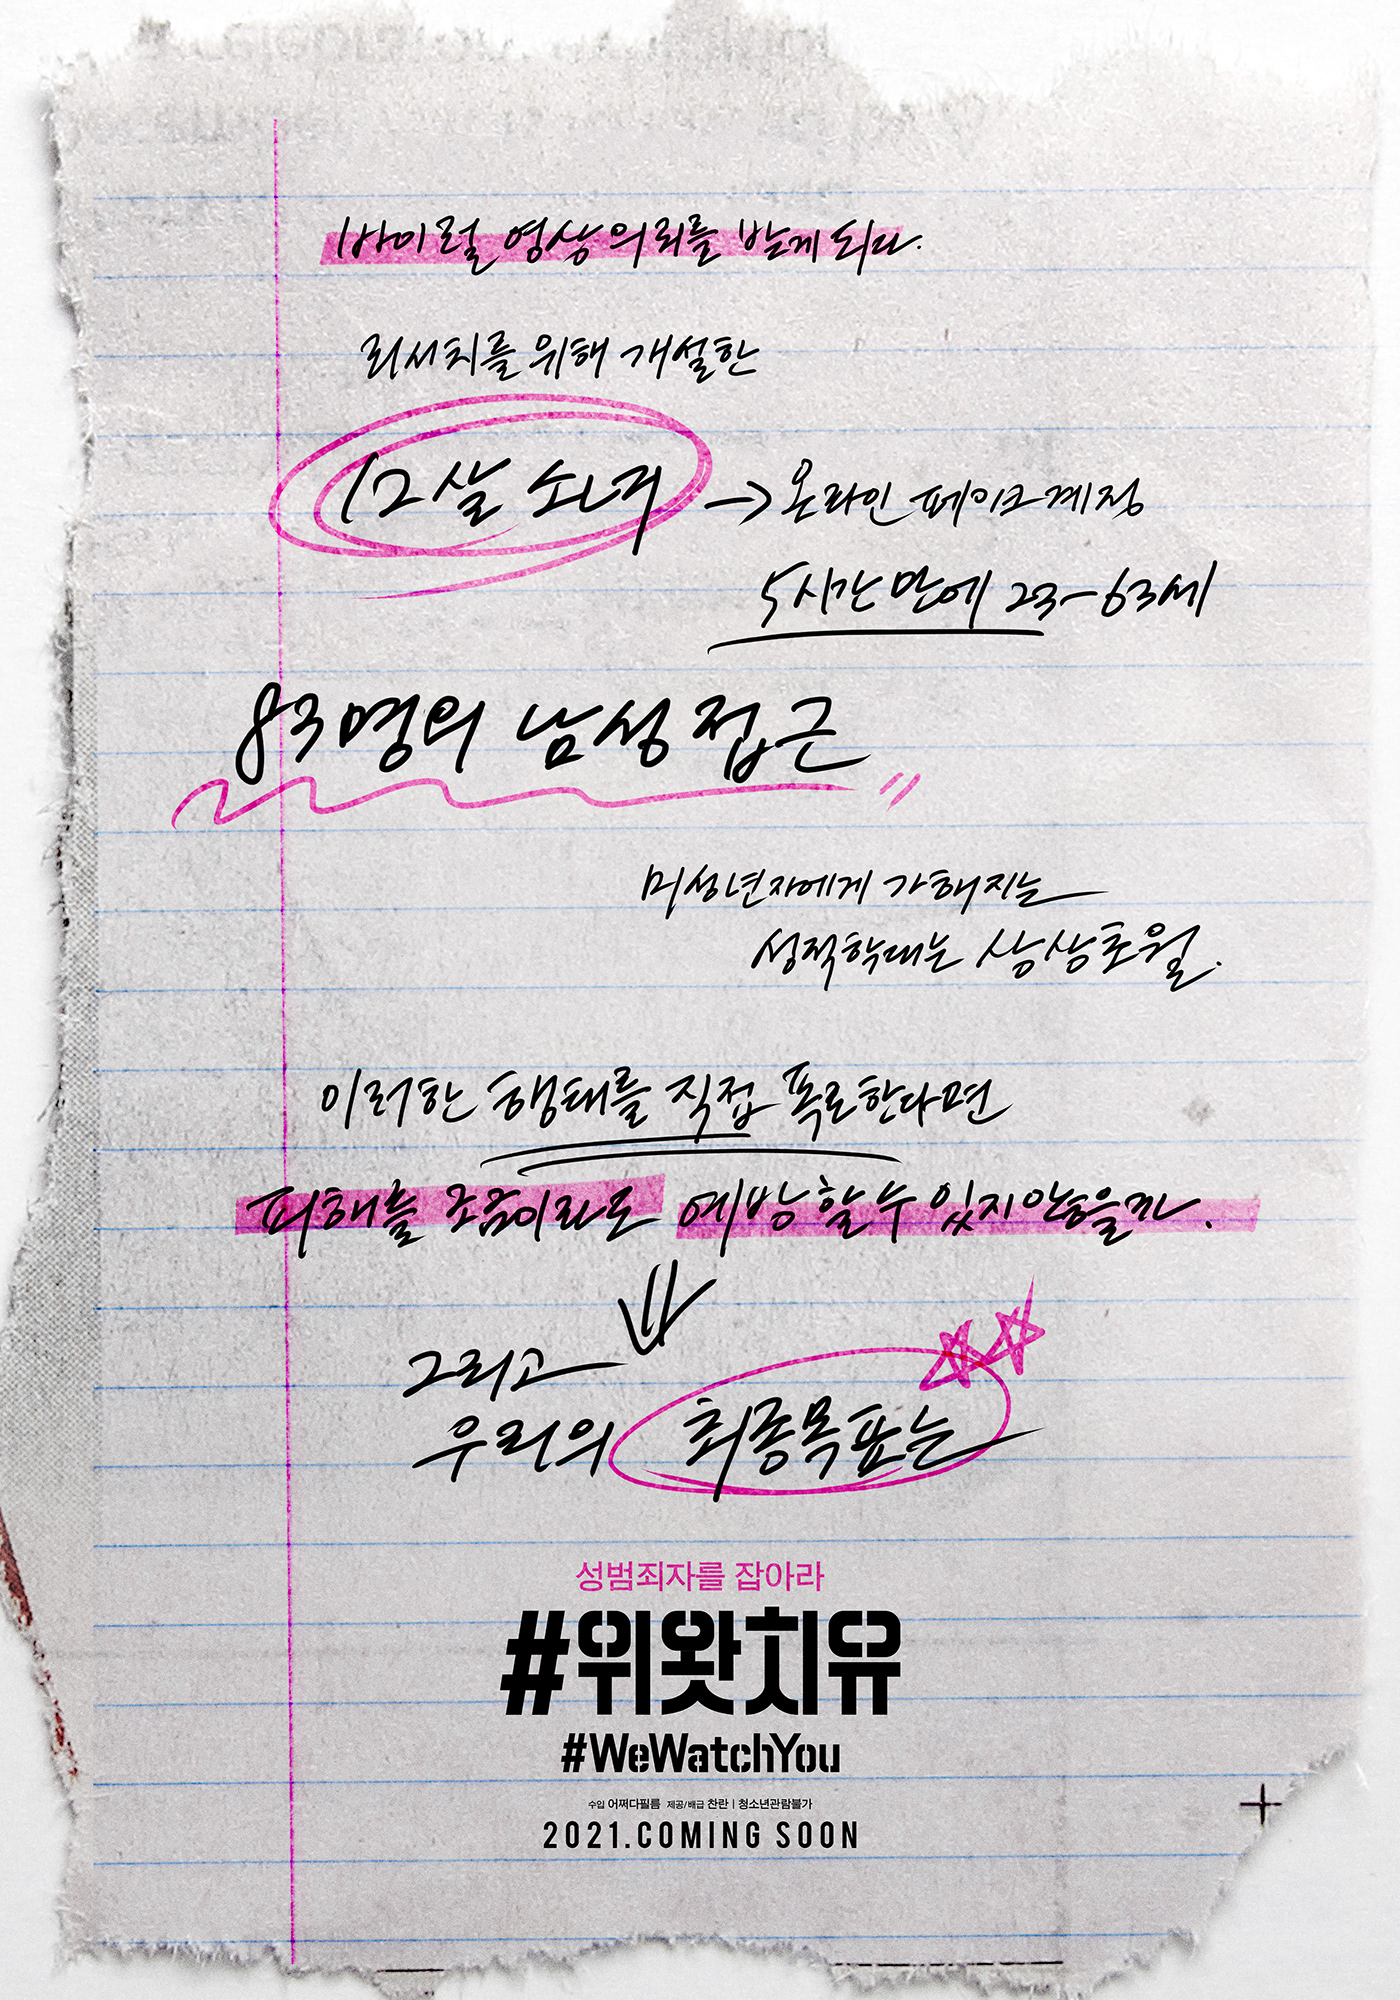 바이럴 영상 의뢰를 받게 되다.
리서치를 위해 개설한
12살 소녀 → 온라인 페이크 계정
5시간 만에 23-63세
83명의 남성 접근
미성년자에게 가해지는
성적학대는 상상초월.
이러한 행태를 직접 폭로한다면
피해를 조금이라도 예방할 수 있지 않을까.
그리고
우리의 최종목표는
성범죄자를 잡아라
#위왓치유
#WeWatchYou
수입 어쩌다필름 제공/배급 찬란 | 청소년관람불가
2021.COMING SOON